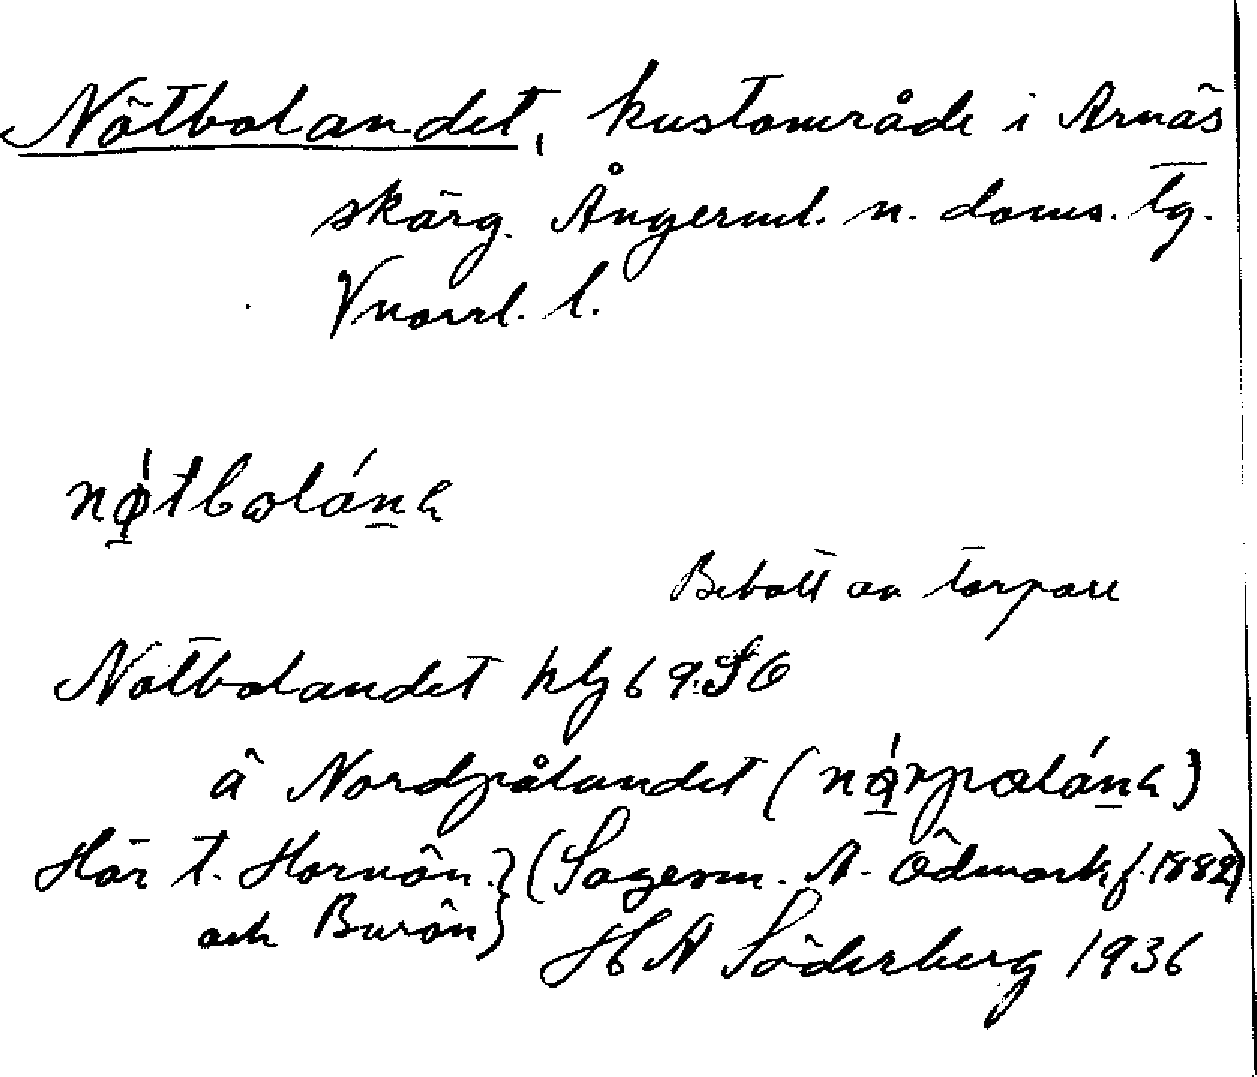 Nötbolandet, kustområde i Arnäs
skärg. Ångerml. n. doms. tg.
Vnorrl. l.
nǿ̱tbωláne
Bebott av torpare
Nötbolandet kbl 69 SO
å Nordpålandet (
Här t. Hornön } (Sagesm. A. Ödmark f. 1882)
och Burön }
H A Söderberg 1936